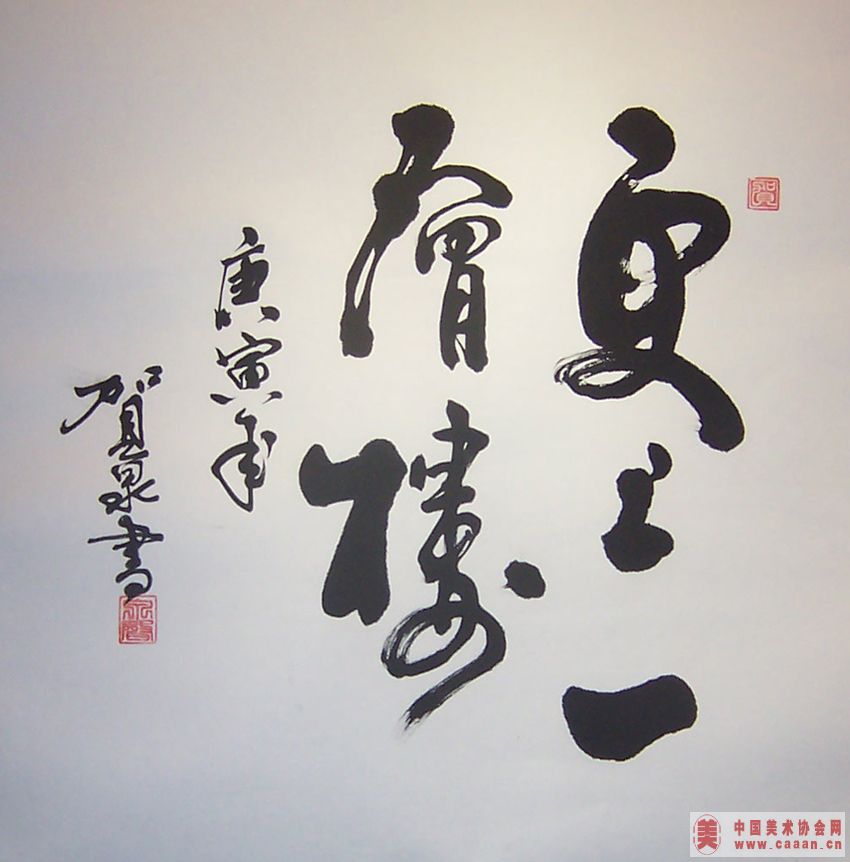 更上一
層樓
庚寅年
賀泉書
賀
中国美术协会网
www.caaan.cn